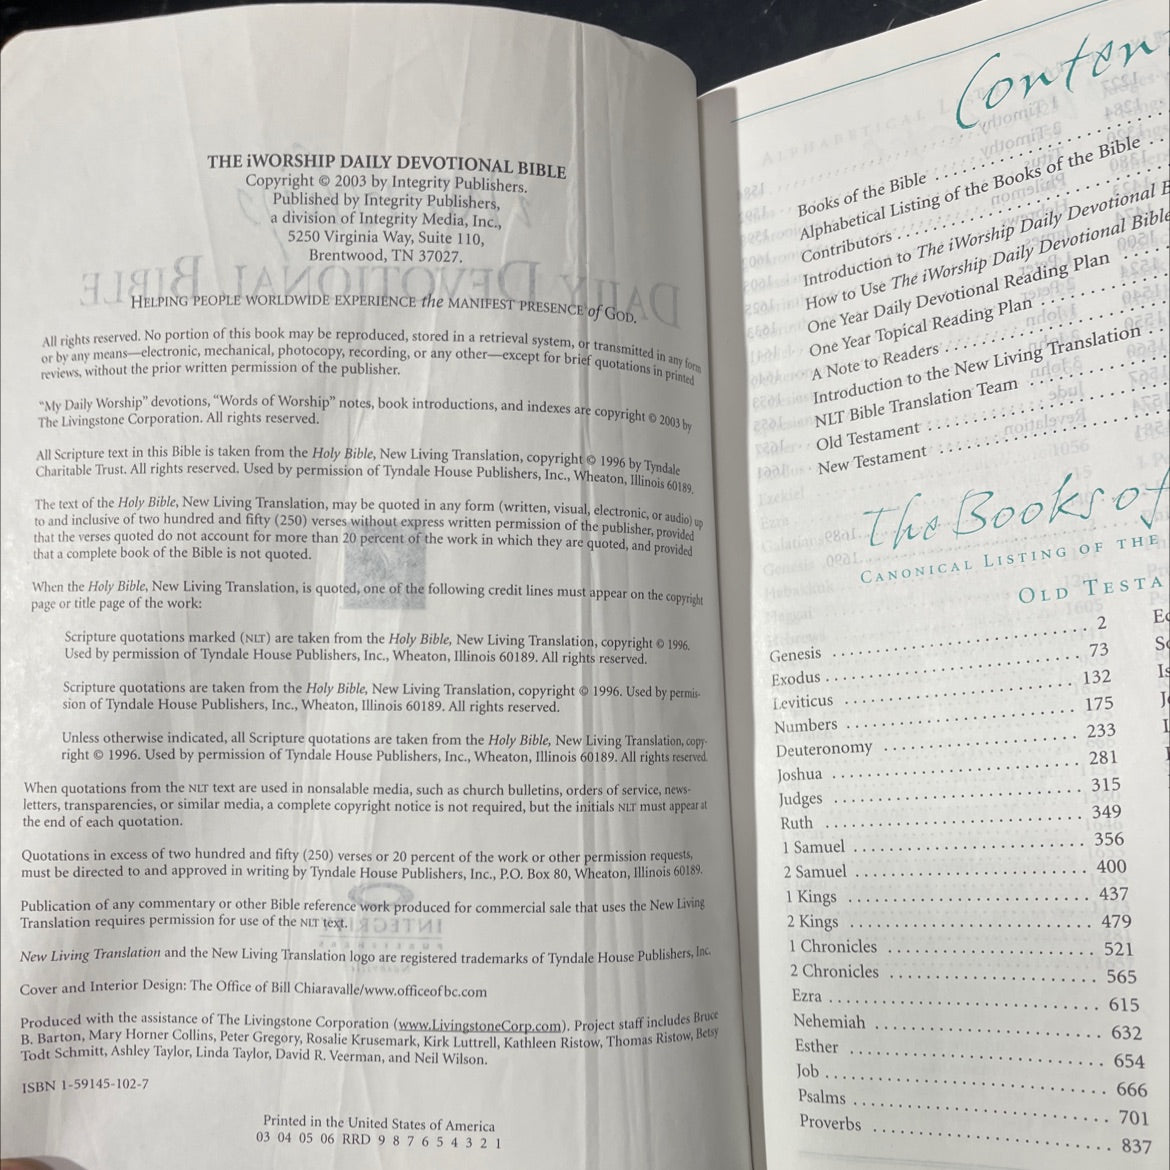 THE iWORSHIP DAILY DEVOTIONAL BIBLE
Copyright © 2003 by Integrity Publishers.
Published by Integrity Publishers,
a division of Integrity Media, Inc.,
5250 Virginia Way, Suite 110,
Brentwood, TN 37027.
HELPING PEOPLE WORLDWIDE EXPERIENCE the MANIFEST PRESENCE of GOD.
All rights reserved. No portion of this book may be reproduced, stored in a retrieval system, or transmitted in any form
or by any means—electronic, mechanical, photocopy, recording, or any other—except for brief quotations in printed
reviews, without the prior written permission of the publisher.
“My Daily Worship” devotions, “Words of Worship” notes, book introductions, and indexes are copyright © 2003 by
The Livingstone Corporation. All rights reserved.
All Scripture text in this Bible is taken from the Holy Bible, New Living Translation, copyright © 1996 by Tyndale
Charitable Trust. All rights reserved. Used by permission of Tyndale House Publishers, Inc., Wheaton, Illinois 60189.
The text of the Holy Bible, New Living Translation, may be quoted in any form (written, visual, electronic, or audio) up
to and inclusive of two hundred and fifty (250) verses without express written permission of the publisher, provided
that the verses quoted do not account for more than 20 percent of the work in which they are quoted, and provided
that a complete book of the Bible is not quoted.
When the Holy Bible, New Living Translation, is quoted, one of the following credit lines must appear on the copyright
page or title page of the work:
Scripture quotations marked (NLT) are taken from the Holy Bible, New Living Translation, copyright © 1996.
Used by permission of Tyndale House Publishers, Inc., Wheaton, Illinois 60189. All rights reserved.
Scripture quotations are taken from the Holy Bible, New Living Translation, copyright © 1996. Used by permis-
sion of Tyndale House Publishers, Inc., Wheaton, Illinois 60189. All rights reserved.
Unless otherwise indicated, all Scripture quotations are taken from the Holy Bible, New Living Translation, copy-
right © 1996. Used by permission of Tyndale House Publishers, Inc., Wheaton, Illinois 60189. All rights reserved.
When quotations from the NLT text are used in nonsalable media, such as church bulletins, orders of service, news-
letters, transparencies, or similar media, a complete copyright notice is not required, but the initials NLT must appear at
the end of each quotation.
Quotations in excess of two hundred and fifty (250) verses or 20 percent of the work or other permission requests,
must be directed to and approved in writing by Tyndale House Publishers, Inc., P.O. Box 80, Wheaton, Illinois 60189.
Publication of any commentary or other Bible reference work produced for commercial sale that uses the New Living
Translation requires permission for use of the NLT text.
New Living Translation and the New Living Translation logo are registered trademarks of Tyndale House Publishers, Inc.
Cover and Interior Design: The Office of Bill Chiaravalle/www.officeofbc.com
Produced with the assistance of The Livingstone Corporation (www.LivingstoneCorp.com). Project staff includes Bruce
B. Barton, Mary Horner Collins, Peter Gregory, Rosalie Krusemark, Kirk Luttrell, Kathleen Ristow, Thomas Ristow, Betsy
Todt Schmitt, Ashley Taylor, Linda Taylor, David R. Veerman, and Neil Wilson.
ISBN 1-59145-102-7
Printed in the United States of America
03 04 05 06 RRD 9 8 7 6 5 4 3 2 1
Conten
Books of the Bible
Alphabetical Listing of the Books of the Bible
Contributors
Introduction to The iWorship Daily Devotional B
How to Use The iWorship Daily Devotional Bible
One Year Daily Devotional Reading Plan
One Year Topical Reading Plan
A Note to Readers
Introduction to the New Living Translation
NLT Bible Translation Team
Old Testament
New Testament
The Books of
CANONICAL LISTING OF THE
OLD TESTA
Genesis 2
Exodus 73
Leviticus 132
Numbers 175
Deuteronomy 233
Joshua 281
Judges 315
Ruth 349
1 Samuel 356
2 Samuel 400
1 Kings 437
2 Kings 479
1 Chronicles 521
2 Chronicles 565
Ezra 615
Nehemiah 632
Esther 654
Job 666
Psalms 701
Proverbs 837